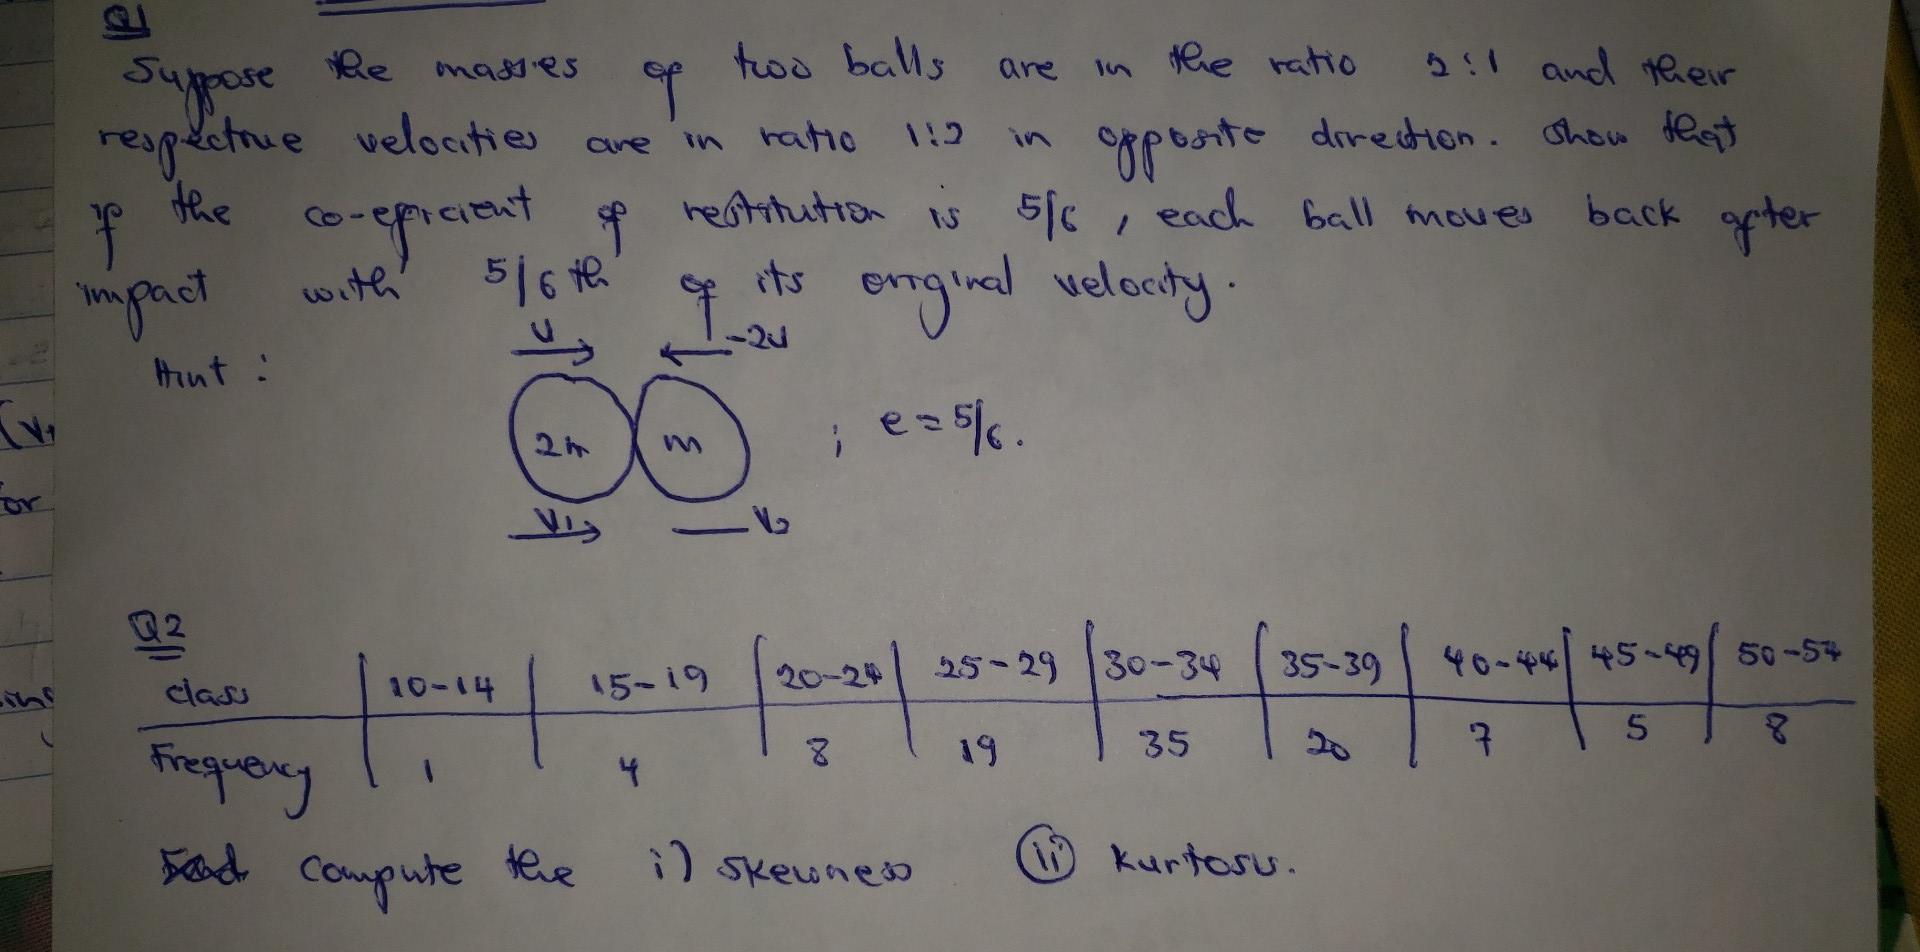 Q1
Suppose the masses of two balls are in the ratio 2:1 and their
respective velocities are in ratio 1:2 in opposite direction. Show that
if the co-efficient of restitution is 5/6, each ball moves back after
impact with 5/6th of its original velocity.
Hint :
U -2U
2m m ; e = 5/6.
V1 V2
Q2
class 10-14 15-19 20-24 25-29 30-34 35-39 40-44 45-49 50-54
Frequency 1 4 8 19 35 20 7 5 8
compute the i) skewness (ii) kurtosis.
(V1
for